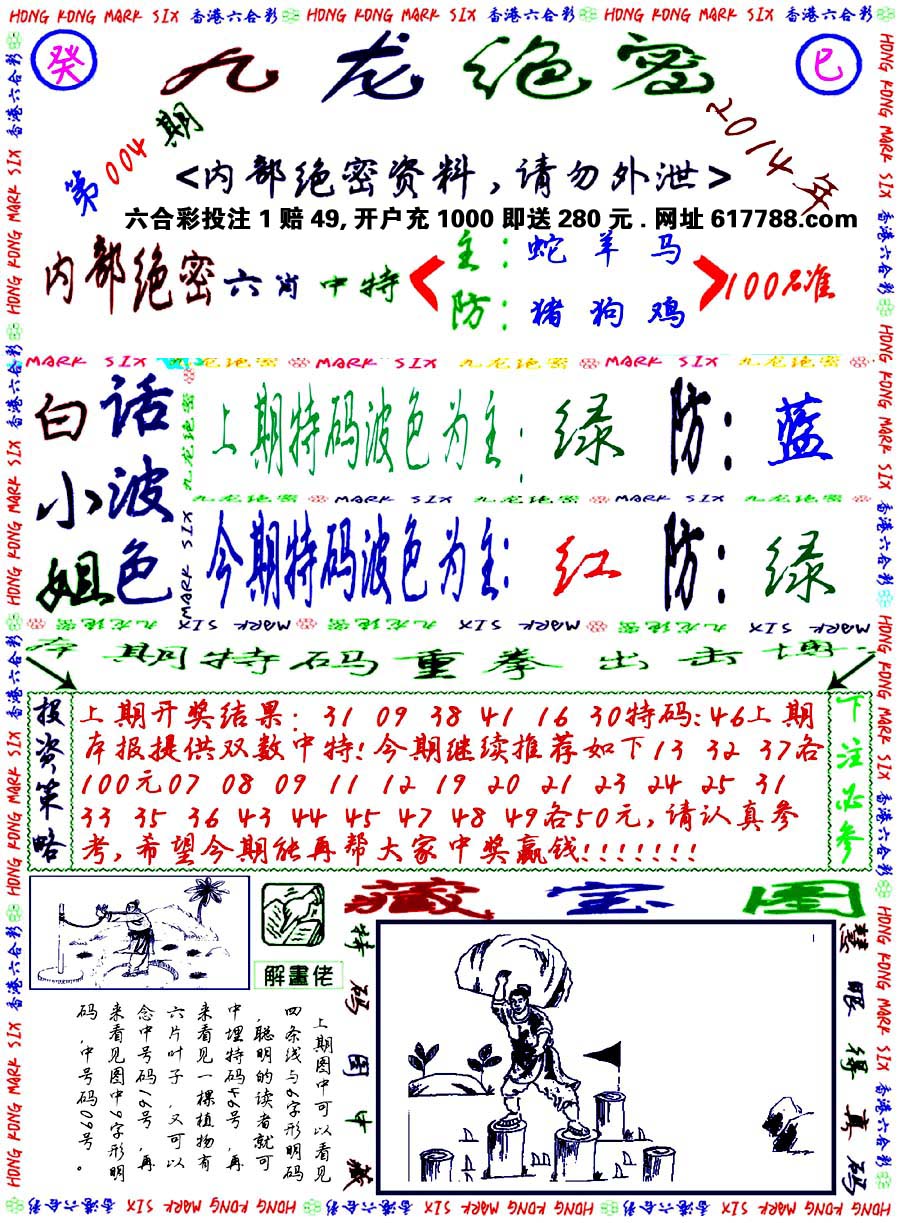 HONG KONG MARK SIX 香港六合彩 HONG KONG MARK SIX 香港六合彩 HONG KONG MARK SIX 香港六合彩
癸
九龙绝密
巳
第004期
2014年
<内部绝密资料,请勿外泄>
六合彩投注 1 赔 49, 开户充 1000 即送 280 元 . 网址 617788.com
内部绝密六肖中特
主：蛇羊马
防：猪狗鸡
100%准
MARK SIX 九龙绝密 MARK SIX 九龙绝密 MARK SIX 九龙绝密
白小姐
话波色
上期特码波色为主：绿 防：蓝
九龙绝密 MARK SIX 九龙绝密 MARK SIX 九龙绝密
今期特码波色为主：红 防：绿
MARK SIX 九龙绝密 MARK SIX 九龙绝密 MARK SIX 九龙绝密
本期特码重拳出击博
投资策略
上期开奖结果：31 09 38 41 16 30特码:46上期
本报提供双数中特!今期继续推荐如下13 32 37各
100元07 08 09 11 12 19 20 21 23 24 25 31
33 35 36 43 44 45 47 48 49各50元,请认真参
考,希望今期能再帮大家中奖赢钱!!!!!!!
下注必参
藏宝图
解畫佬
上期图中可以看见
四条线与6字形明码
,聪明的读者就可
中埋特码46号,再
来看见一棵植物有
六片叶子,又可以
念中号码16号,再
来看见图中9字形明
码,中号码09号。
特码图中藏
慧眼得真码
HONG KONG MARK SIX 香港六合彩 HONG KONG MARK SIX 香港六合彩 HONG KONG MARK SIX 香港六合彩